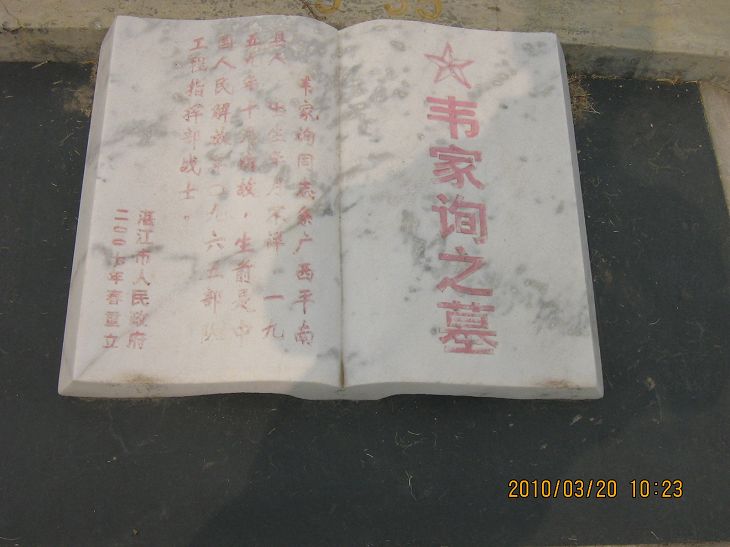 韦家询之墓
韦家询同志系广西平南
县人，出生年月不详，一九
五九年十月病故，生前是中
国人民解放军〇九六五部队
工程指挥部战士。
湛江市人民政府
二〇〇七年春重立
2010/03/20 10:23